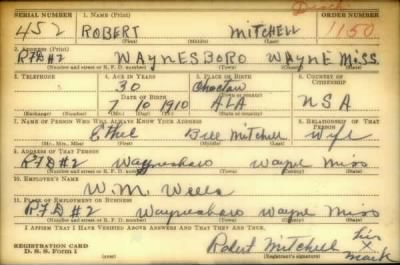 Drock
SERIAL NUMBER 1. NAME (Print) ORDER NUMBER
452 ROBERT MITCHELL 1150
(First) (Middle) (Last)
2. ADDRESS (Print)
RFD #2 WAYNESBORO WAYNE MISS.
(Number and street or R. F. D. number) (Town) (County) (State)
3. TELEPHONE 4. AGE IN YEARS 5. PLACE OF BIRTH 6. COUNTRY OF CITIZENSHIP
30 Choctaw
DATE OF BIRTH (Town or county)
7 10 1910 ALA USA
(Exchange) (Number) (Mo.) (Day) (Yr.) (State or country)
7. NAME OF PERSON WHO WILL ALWAYS KNOW YOUR ADDRESS 8. RELATIONSHIP OF THAT PERSON
Ethel Bell Mitchell Wife
(Mr., Mrs., Miss) (First) (Middle) (Last)
9. ADDRESS OF THAT PERSON
RFD #2 Waynesboro Wayne Miss
(Number and street or R. F. D. number) (Town) (County) (State)
10. EMPLOYER'S NAME
W. M. Wells
11. PLACE OF EMPLOYMENT OR BUSINESS
RFD #2 Waynesboro Wayne Miss
(Number and street or R. F. D. number) (Town) (County) (State)
I AFFIRM THAT I HAVE VERIFIED ABOVE ANSWERS AND THAT THEY ARE TRUE.
REGISTRATION CARD
D. S. S. Form 1
Robert Mitchell his
X
mark